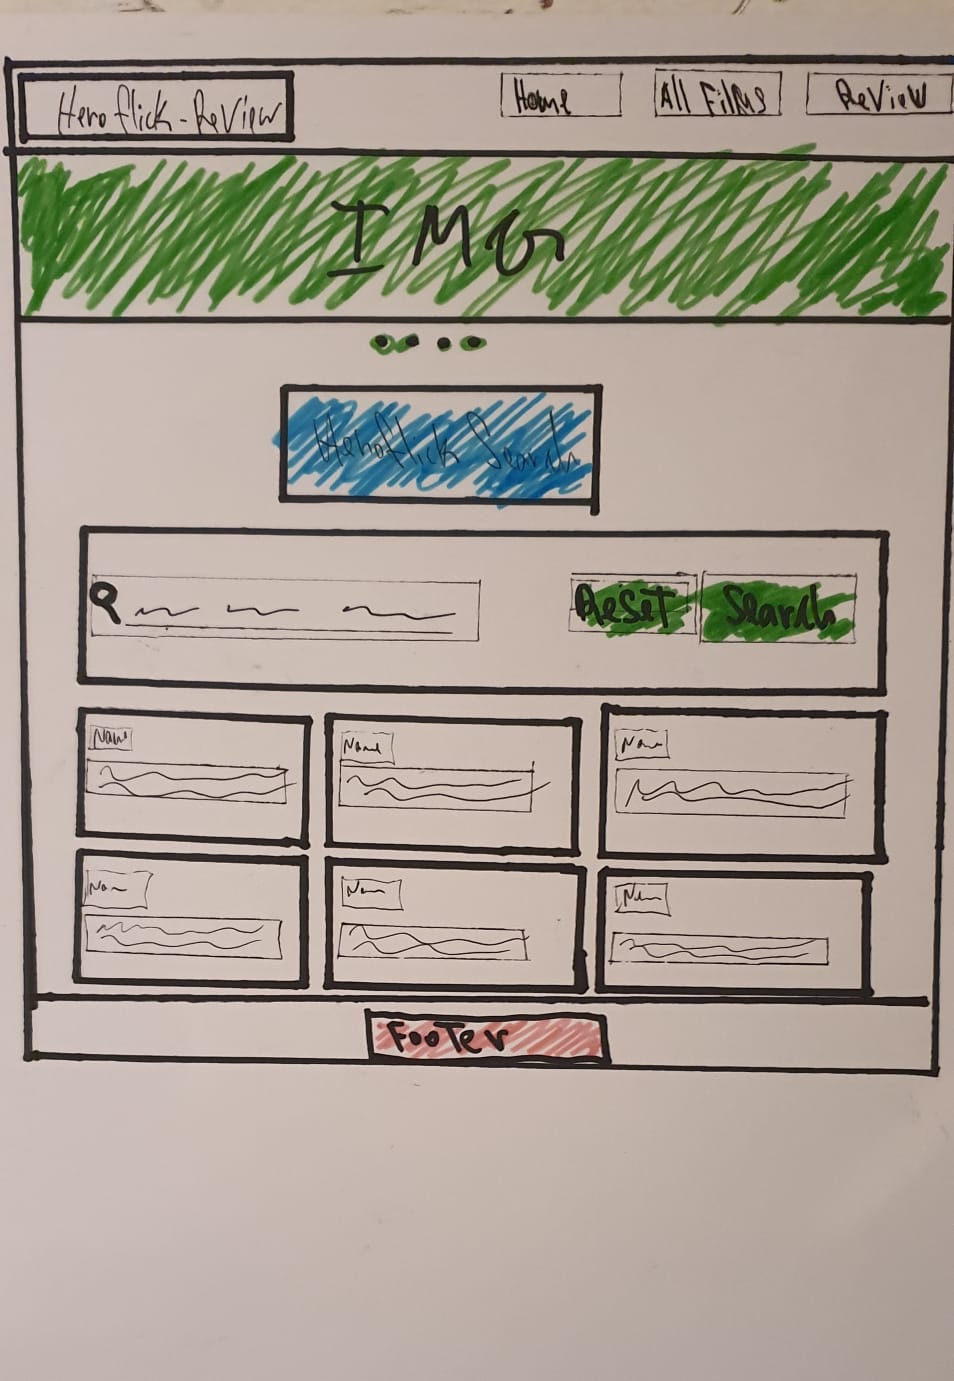 Heroflick-Review
Home
All Films
Review
IMG
Heroflick Search
Reset
Search
Name
Name
Name
Name
Name
Name
Footer